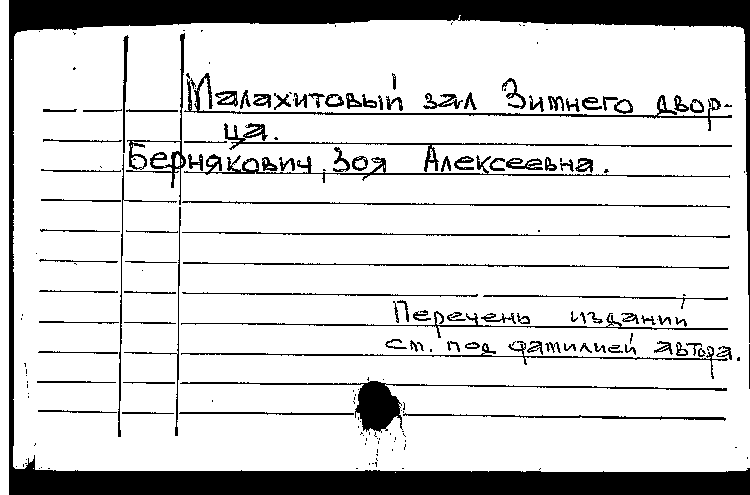 Малахитовый зал Зимнего двор-
ца.
Бернякович, Зоя Алексеевна.
Перечень изданий
см. под фамилией автора.